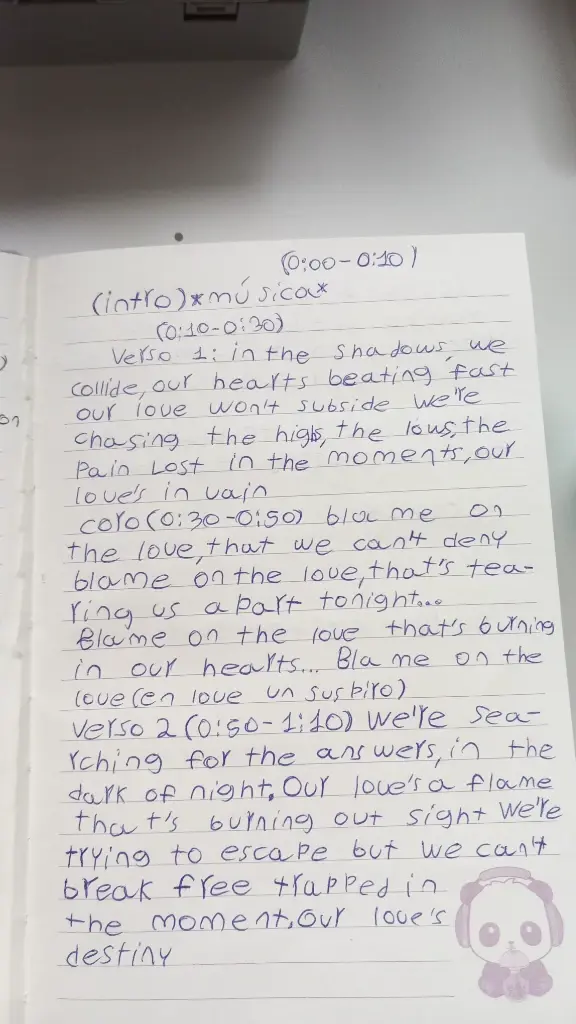 (0:00-0:10)
(intro)*música*
(0:10-0:30)
Verso 1: in the shadows, we
collide, our hearts beating fast
our love won't subside we're
chasing the highs, the lows, the
pain Lost in the moments, our
love's in vain
coro (0:30-0:50) blame on
the love, that we can't deny
blame on the love, that's tea-
ring us apart tonight...
Blame on the love that's burning
in our hearts... Blame on the
love (en love un suspiro)
Verso 2 (0:50-1:10) We're sea-
rching for the answers, in the
dark of night. Our love's a flame
that's burning out sight We're
trying to escape but we can't
break free trapped in
the moment, our love's
destiny
on